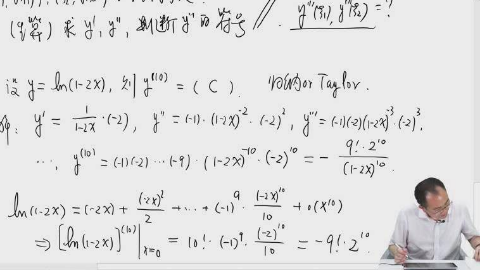 求 y', y'', 判断 y'' 的符号 // y''(ξ₁), y''(ξ₂) = ?
设 y = ln(1-2x), 则 y⁽¹⁰⁾ = ( C ). 归纳 or Taylor.
解: y' = 1/(1-2x) · (-2), y'' = (-1)·(1-2x)⁻²·(-2)², y''' = (-1)(-2)(1-2x)⁻³·(-2)³.
…, y⁽¹⁰⁾ = (-1)(-2)…(-9)·(1-2x)⁻¹⁰·(-2)¹⁰ = - 9!·2¹⁰/(1-2x)¹⁰.
ln(1-2x) = (-2x) + (-2x)²/2 + … + (-1)⁹ · (-2x)¹⁰/10 + o(x¹⁰)
⇒ [ln(1-2x)]⁽¹⁰⁾|ₓ₌₀ = 10!·(-1)⁹·(-2)¹⁰/10 = -9!·2¹⁰